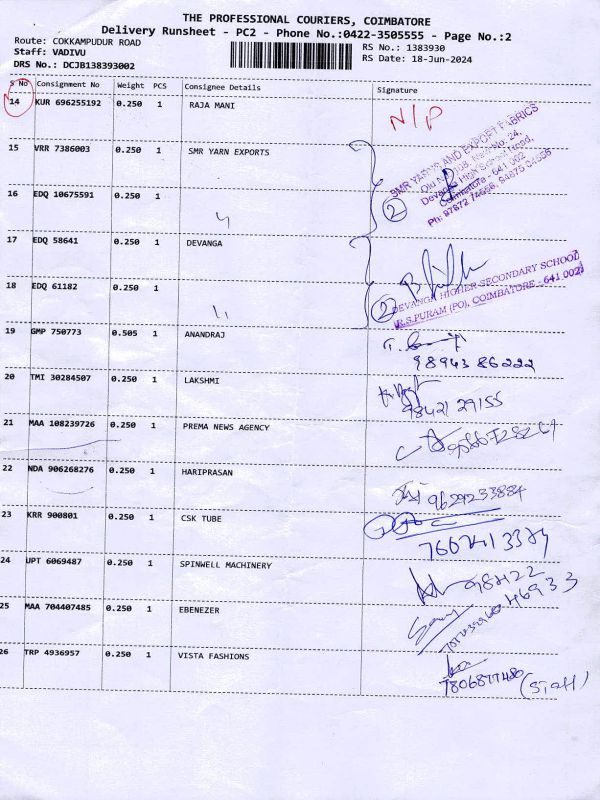 THE PROFESSIONAL COURIERS, COIMBATORE
Delivery Runsheet - PC2 - Phone No.:0422-3505555 - Page No.:2
Route: COKKAMPUDUR ROAD
RS No.: 1383930
Staff: VADIVU
RS Date: 18-Jun-2024
DRS No.: DCJB138393002
S No Consignment No Weight PCS Consignee Details Signature
14 KUR 696255192 0.250 1 RAJA MANI N/P
15 VRR 7386003 0.250 1 SMR YARN EXPORTS
SMR YARNS AND EXPORT FABRICS
Devanga High School Road,
Coimbatore - 641 002
16 EDQ 10675591 0.250 1 2
17 EDQ 58641 0.250 1 DEVANGA
18 EDQ 61182 0.250 1 2
DEVANGA HIGHER SECONDARY SCHOOL
R.S.PURAM (PO), COIMBATORE - 641 002
19 GMP 750773 0.505 1 ANANDRAJ
98943 86222
20 TMI 30284507 0.250 1 LAKSHMI
98421 29155
21 MAA 108239726 0.250 1 PREMA NEWS AGENCY
22 NDA 906268276 0.250 1 HARIPRASAN
9629233884
23 KRR 900801 0.250 1 CSK TUBE
24 UPT 6069487 0.250 1 SPINWELL MACHINERY
25 MAA 704407485 0.250 1 EBENEZER
26 TRP 4936957 0.250 1 VISTA FASHIONS
(Staff)